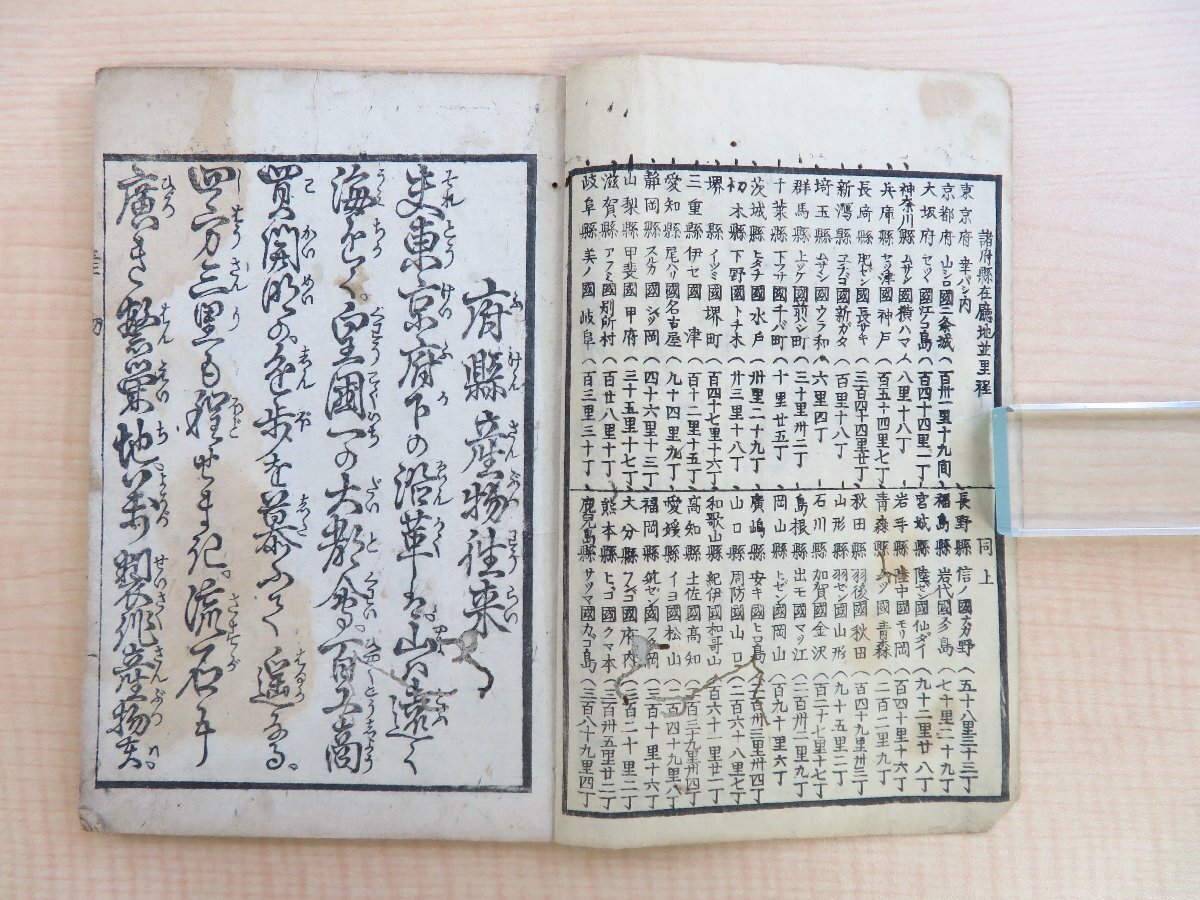 諸府縣在廳地並里程
東京府 幸バシ内
京都府 山シロ國二条城 (百卅一里十九間
大坂府 セッツ國江ノコ島 (百四十四里一丁
神奈川縣 ムサシ國横ハマ (八里十八丁
兵庫縣 セッ津國神戸 (百五十四里七丁
長崎縣 肥ゼン國長サキ (三百四十四里廿丁
新潟縣 エチゴ國新ガタ (百里十八丁
埼玉縣 ムサシ國ウラ和 (六里四丁
群馬縣 上ツケ國前バシ (三十里卅二丁
千葉縣 下フサ國千バ町 (十里廿五丁
茨城縣 ヒタチ國水戸 (卅里二十九丁
栃木縣 下野國トチ木 (廿三里十八丁
堺縣 イヅミ國堺町 (百四十七里十六丁
三重縣 伊セ國津 (百十二里十五丁
愛知縣 尾ハリ國名古屋 (九十四里九丁
静岡縣 スルカ國シヅ岡 (四十六里十三丁
山梨縣 甲斐國甲府 (三十五里十七丁
滋賀縣 アフミ國別所村 (百廿八里十丁
岐阜縣 美ノ國岐阜 (百三里三十丁
同上
長野縣 信ノ國ナカ野 (五十八里三十三丁
福島縣 岩代國フク島 (七十里二十九丁
宮城縣 陸ゼン國仙ダイ (九十二里廿八丁
岩手縣 陸中國モリ岡 (百四十里十六丁
青森縣 ムツ國青森 (二百二里九丁
秋田縣 羽後國秋田 (百四十九里卅三丁
山形縣 羽ゼン國山形 (九十五里二丁
石川縣 加賀國金沢 (百二十七里十七丁
島根縣 出モ國マツ江 (二百卅二里九丁
岡山縣 ヒゼン國岡山 (百九十里六丁
廣嶋縣 安キ國ヒロ島 (二百卅三里卅四丁
山口縣 周防國山口 (二百六十八里七丁
和歌山縣 紀伊國和哥山 (百六十一里廿二丁
高知縣 土佐國高知 (二百三十九里卅四丁
愛媛縣 イヨ國松山 (二百四十九里八丁
福岡縣 筑ゼン國フク岡 (三百十里十六丁
大分縣 フンゴ國府内 (三百二十里二丁
熊本縣 ヒゴ國クマ本 (三百卅五里廿二丁
鹿児島縣 サツマ國カゴ島 (三百八十九里四丁
府縣産物往来
夫東京府下の沿革ハ。山に遠く
海ちかく。皇國一の大都会。百工商
買開明の。進歩を慕ふて遥なる。
四方三里も程せまに。流石に
廣き繁栄地。万の製作産物ハ。